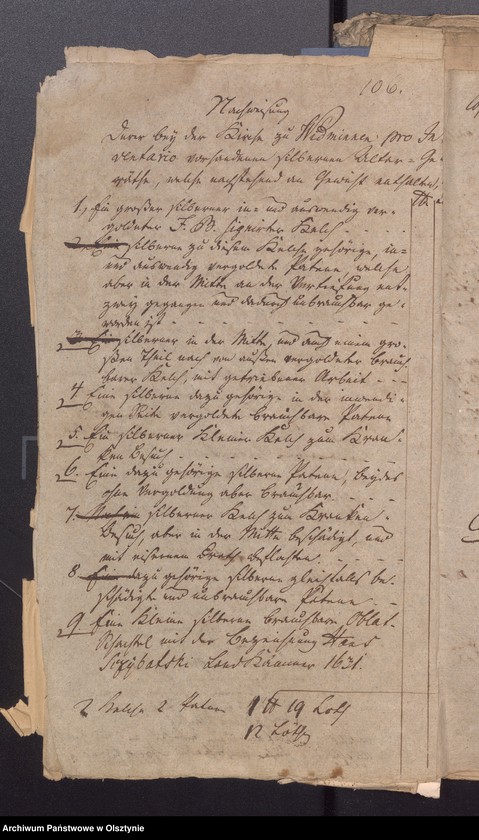 106.
Nachweisung
Derer bey der Kirche zu Widminnen pro In-
ventario vorhandenen silbernen Altar-Ge-
räthe, welche nachstehend an Gewicht enthalten,
1, Ein großer silberner in- und auswendig ver-
goldeter F. B. signirter Kelch
2. Eine silberne zu diesem Kelche gehörige, in-
und auswendig vergoldete Patene, welche
aber in der Mitte an der Vertiefung ent-
zwey gegangen und dadurch unbrauchbar ge-
worden ist
3. Ein silberner in der Mitte, und auch einem gro-
ßen Theil nach von außen vergoldeter brauch-
barer Kelch, mit getriebener Arbeit
4 Eine silberne dazu gehörige in der inwendi-
gen Seite vergoldete brauchbare Patene
5. Ein silberner kleiner Kelch zum Kran-
ken Besuch
6. Eine dazu gehörige silberne Patene, beydes
ohne Vergoldung aber brauchbar
7. silberner Kelch zum Kranken
Besuch, aber in der Mitte beschädigt, und
mit eisernem Drath beflochten
8 Eine dazu gehörige silberne gleichfalls be-
schädigte und unbrauchbare Patene
9 Eine kleine silberne brauchbare Oblat-
Schachtel mit der Bezeichnung Hans
Land Kämmer 1631.
2 Kelche 2 Patenen 1 ℔ 19 Loth
12 Loth
Archiwum Państwowe w Olsztynie